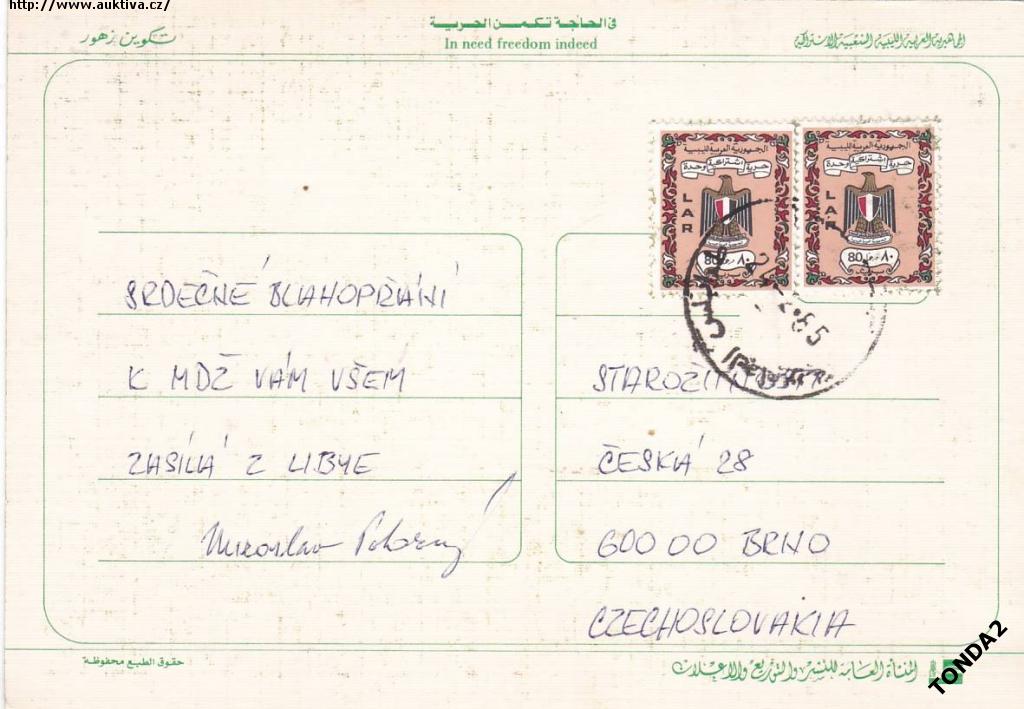 http://www.auktiva.cz/
تكوين زهور
في الحاجة تكمن الحرية
In need freedom indeed
الجماهيرية العربية الليبية الشعبية الاشتراكية
الجمهورية العربية الليبية
حرية اشتراكية وحدة
LAR
80 ٨٠
الجمهورية العربية الليبية
حرية اشتراكية وحدة
LAR
80 ٨٠
SRDEČNÉ BLAHOPŘÁNÍ
K MDŽ VÁM VŠEM
ZASÍLÁ Z LIBYE
Miroslav Pokorný
ČESKÁ 28
600 00 BRNO
CZECHOSLOVAKIA
حقوق الطبع محفوظة
المنشأة العامة للنشر والتوزيع والاعلان
TONDA2